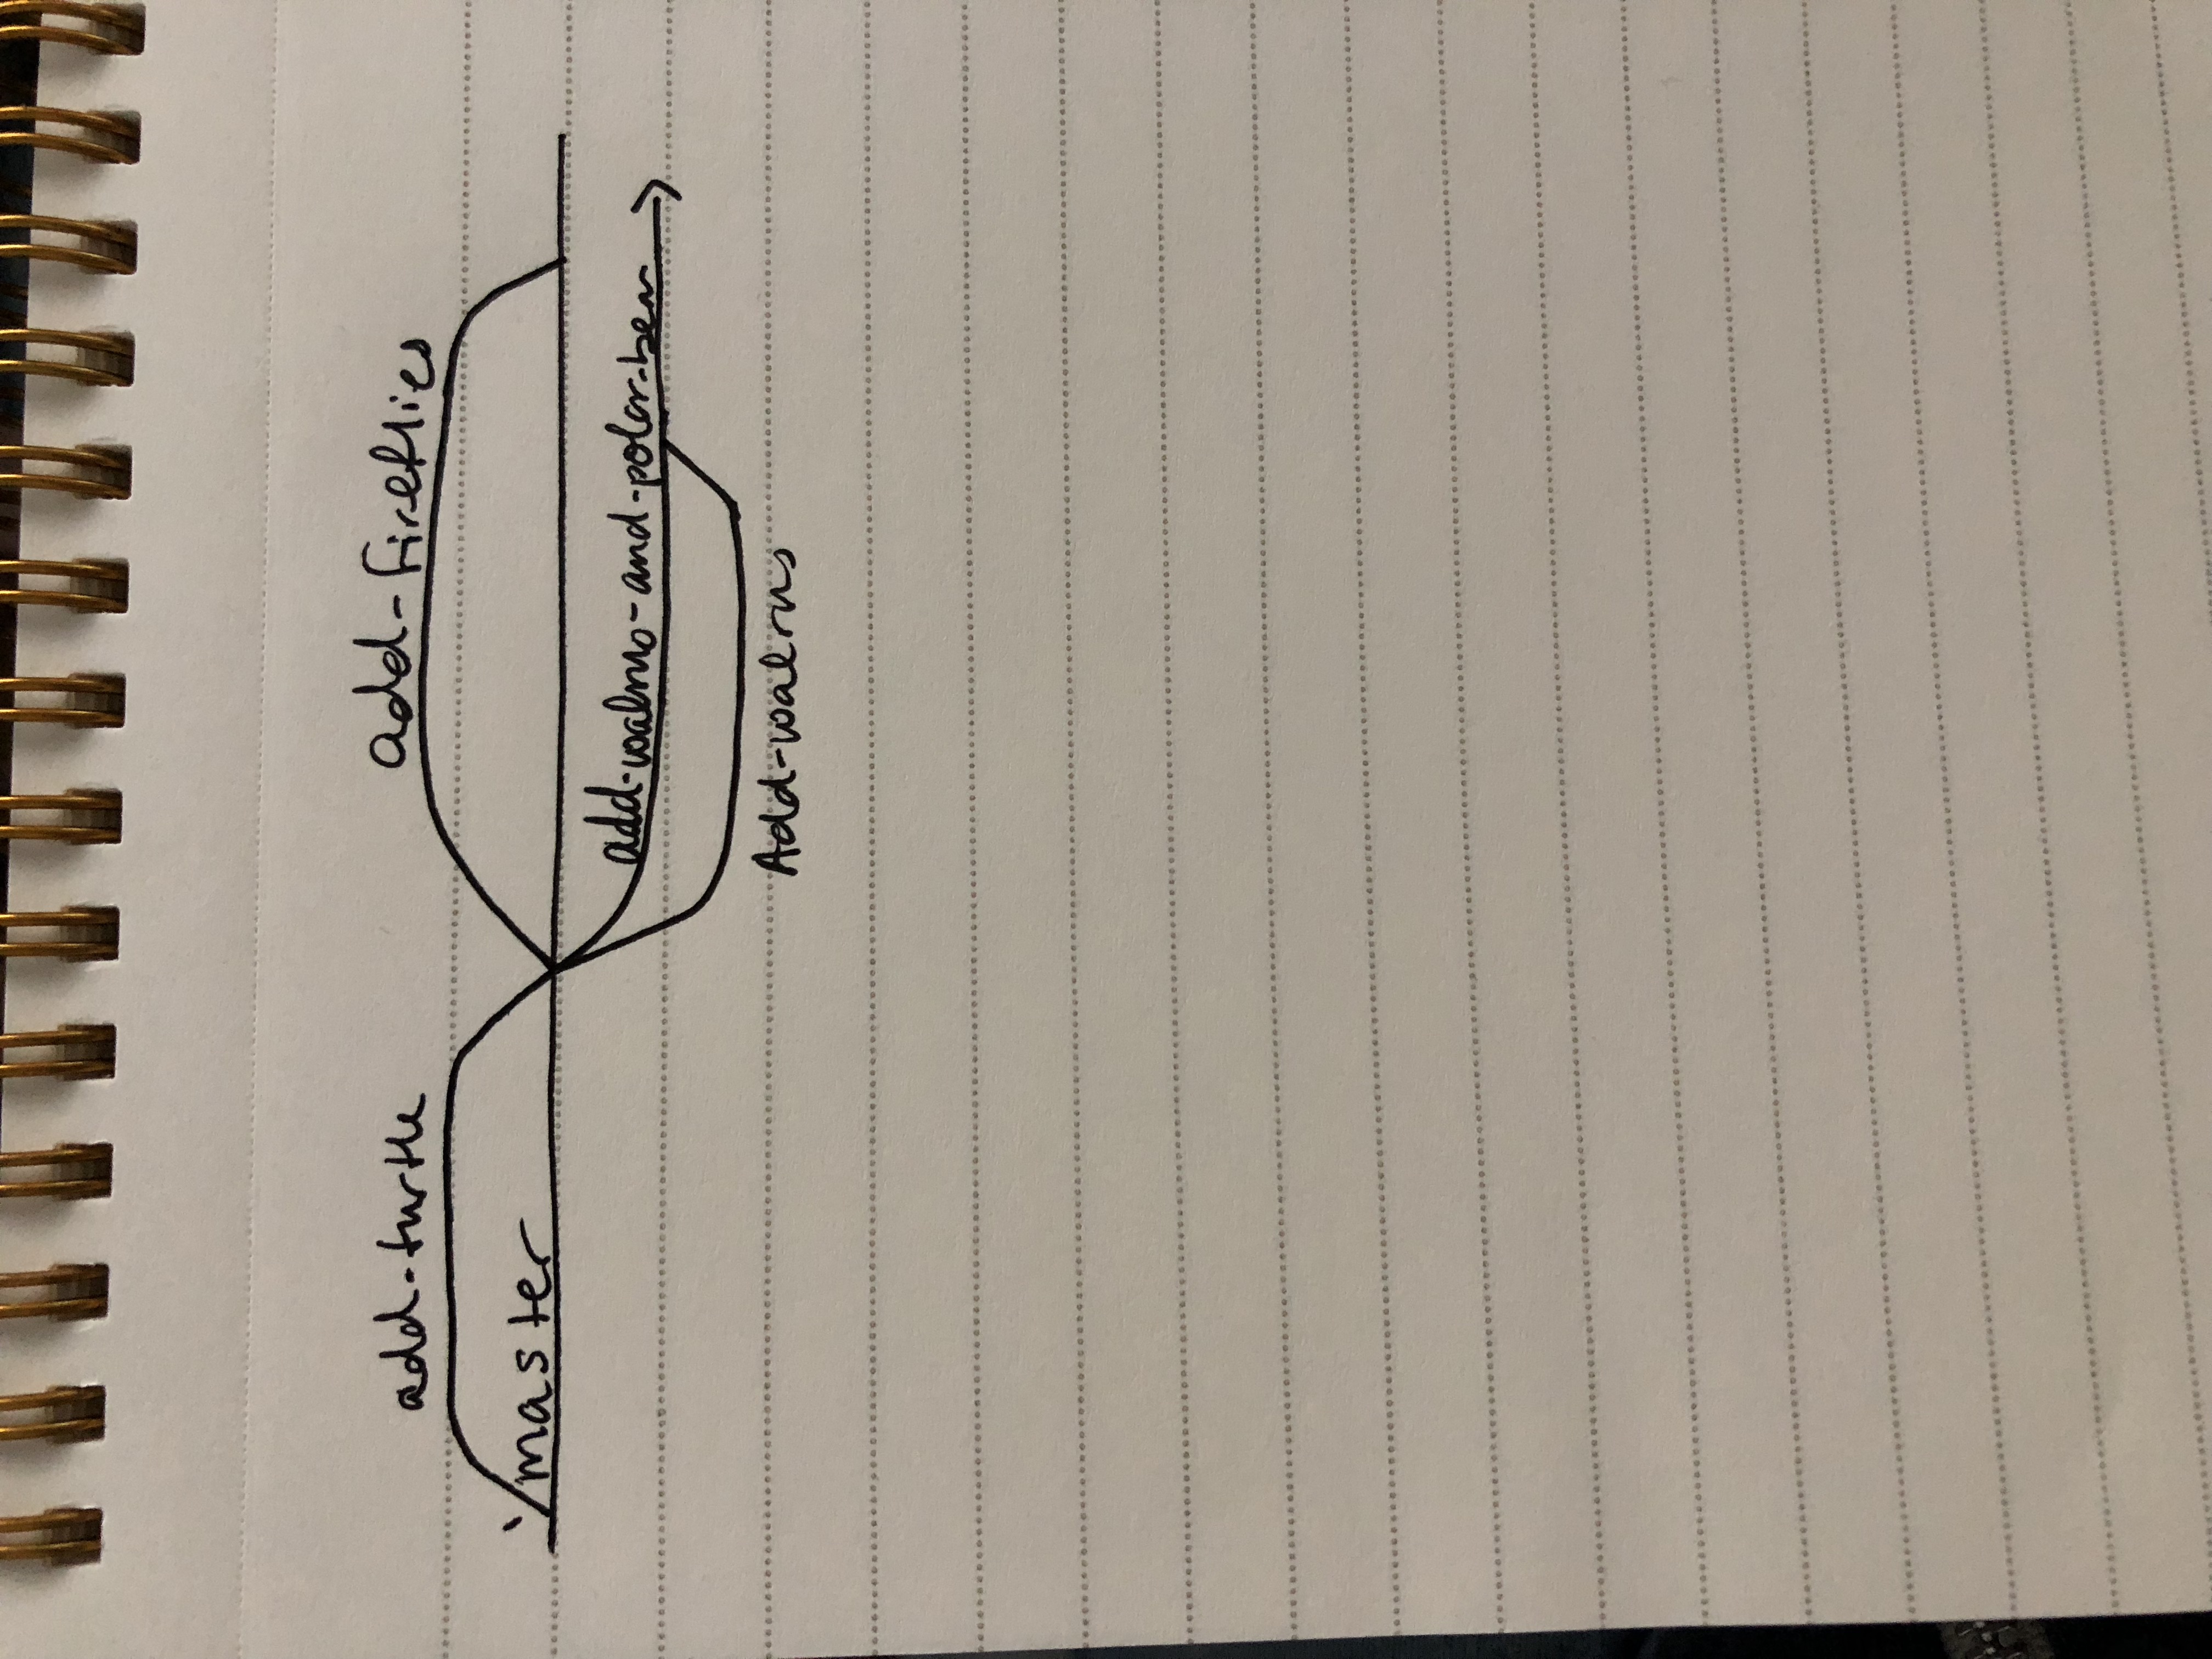 add-turtle
add-fireflies
master
add-walrus-and-polar-bear
Add-walrus